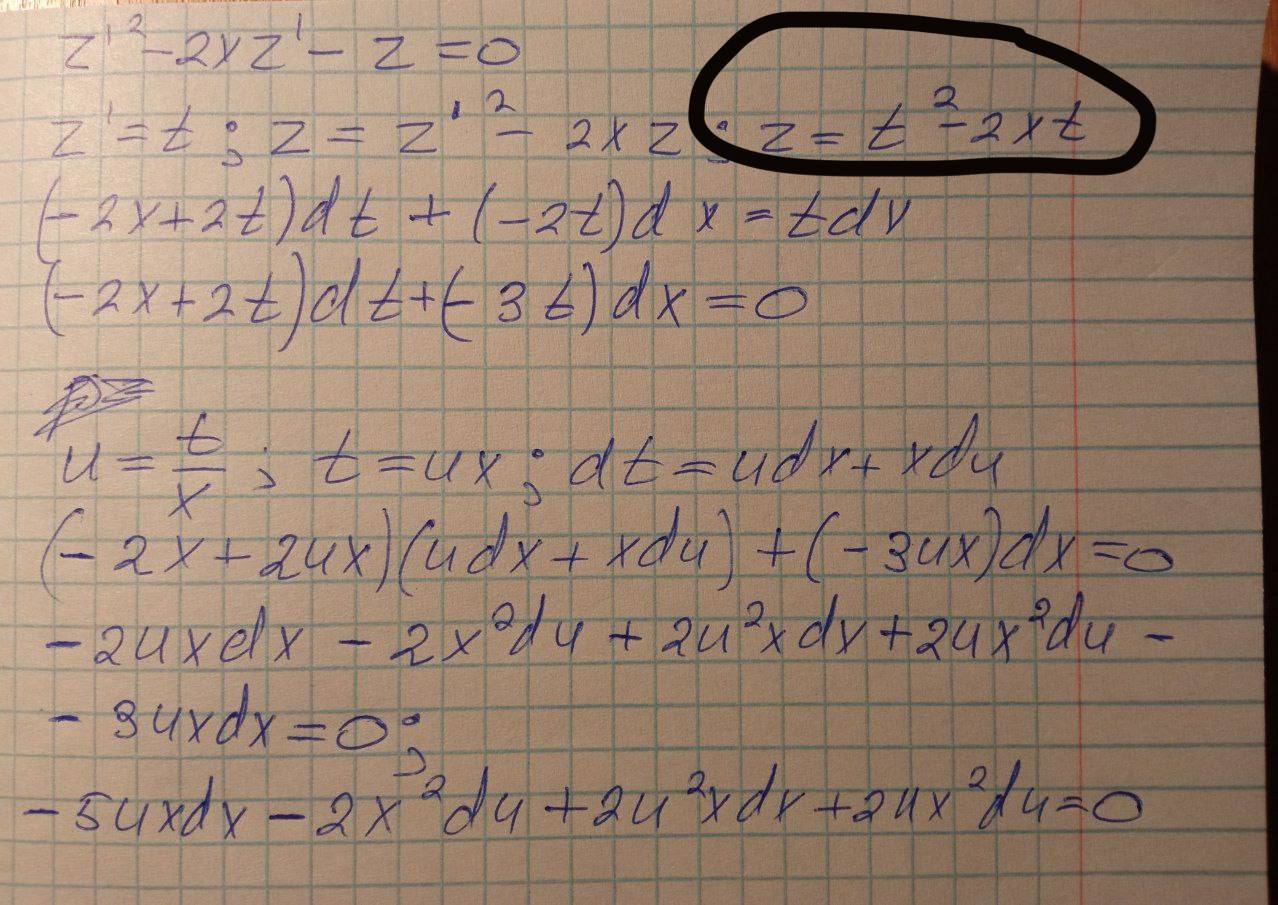 z'² - 2xz' - z = 0
z' = t ; z = z'² - 2xz ; z = t² - 2xt
(-2x+2t)dt + (-2t)dx = tdx
(-2x+2t)dt+(-3t)dx = 0
u = t/x ; t = ux ; dt = udx + xdu
(-2x+2ux)(udx + xdu) + (-3ux)dx = 0
-2uxdx - 2x²du + 2u²xdx + 2ux²du -
- 3uxdx = 0 ;
-5uxdx - 2x²du + 2u²xdx + 2ux²du = 0